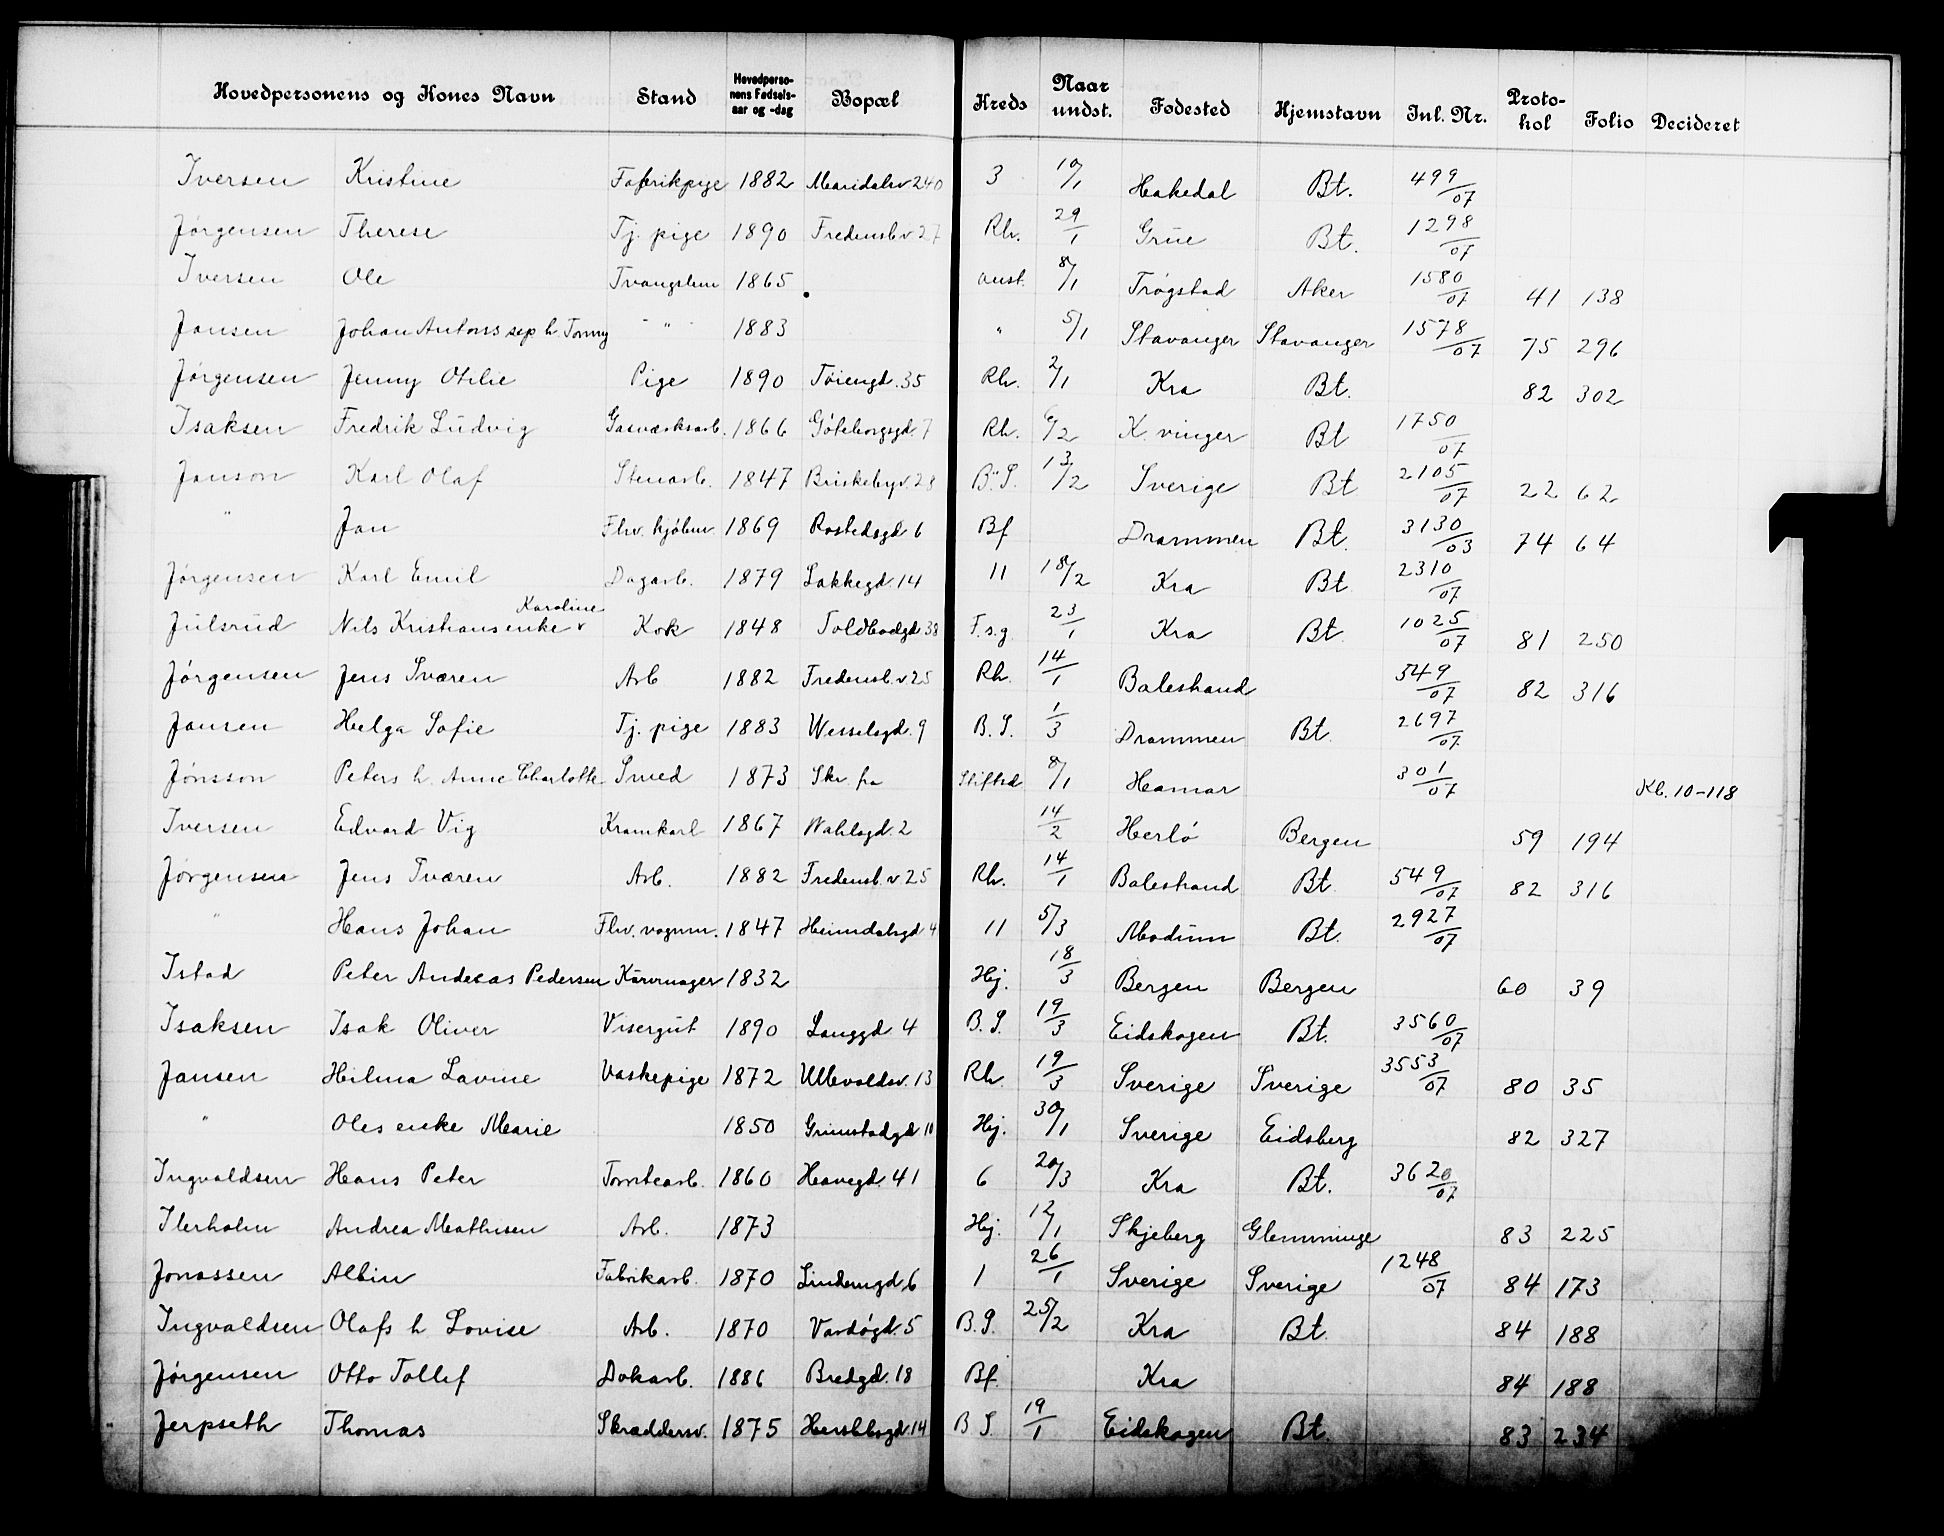 Hovedpersonens og Kones Navn Stand Hovedpersonens Fødselsaar og -dag Bopæl Kreds Naar undst. Fødested Hjemstavn Inl. Nr. Protokol Folio Decideret
Iversen Kristine Fabrikpige 1882 Maridalsv 240 3 10/1 Hakedal Bt. 499/07
Jørgensen Therese Tj. pige 1890 Fredensb.v 27 Rh. 29/1 Grue Bt. 1298/07
Iversen Ole Tvangslem 1865 anst. 8/1 Trøgstad Aker 1580/07 41 138
Jansen Johan Antons sep. h. Tomy - " - 1883 " 5/1 Stavanger Stavanger 1578/07 75 296
Jørgensen Jenny Otilie Pige 1890 Tøiengd. 35 Rh. 2/1 Kra Bt. 82 302
Isaksen Fredrik Ludvig Gasværksarb. 1866 Gøteborgsgd. 7 Rh. 6/2 K. vinger Bt 1750/07
Janson Karl Olaf Stenarb. 1847 Briskebyv. 28 B. S. 13/2 Sverige Bt 2105/07 22 62
" Jan Fhv. kjøbm. 1869 Rostedsgd 6 Bf Drammen Bt. 3130/03 74 64
Jørgensen Karl Emil Dagarb. 1879 Lakkegd. 14 11 18/2 Kra Bt 2310/07
Julsrud Nils Kristians enke v Karoline Kok 1848 Toldbodgd. 38 F.s.g 23/1 Kra Bt. 1025/07 81 250
Jørgensen Jens Sværen Arb 1882 Fredensb. v. 25 Rh. 14/1 Balestrand 549/07 82 316
Jansen Helga Sofie Tj. pige 1883 Wesselsgd. 9 B. S. 1/3 Drammen Bt. 2697/07
Jønsson Peters h. Anne Charlotte Smed 1873 Skr. fra Stiftsd 8/1 Hamar 301/07 Kb. 10-118
Iversen Edvard Vig Kramkarl 1867 Wahlsgd. 2 14/2 Herlø Bergen 59 194
Jørgensen Jens Sværen Arb. 1882 Fredensb. v. 25 Rh. 14/1 Balestrand Bt. 549/07 82 316
" Hans Johan Fhv. vognm. 1847 Heimdalsgd 4 11 5/3 Modum Bt. 2927/07
Istad Peter Andreas Pedersen Kurvmager 1832 Hej. 18/3 Bergen Bergen 60 39
Isaksen Isak Oliver Visergut 1890 Langgd. 4 B. S. 19/3 Eidskogen Bt. 3560/07
Jansen Hilma Lavine Vaskepige 1872 Ullevoldsv. 13 Rh. 19/3 Sverige Sverige 3553/07 80 35
" Oles enke Marie 1850 Grimstadgd 10 Hej. 30/1 Sverige Eidsberg 82 327
Ingvaldsen Hans Peter Tomtearb. 1860 Havegd. 41 6 20/3 Kra Bt. 3620/07
Ilerholm Andrea Mathisen Arb. 1873 Hej. 12/1 Skjeberg Glemminge 83 225
Jonassen Albin Fabrikarb. 1870 Lindemgd. 6 1 26/1 Sverige Sverige 1248/07 84 173
Ingvaldsen Olafs h Lovise Arb. 1870 Vardøgd. 5 B. S. 25/2 Kra Bt. 84 188
Jørgensen Otto Tollef Dokarb. 1886 Bredgd. 18 Bf. Kra 84 188
Jerpseth Thomas Skræddersv. 1875 Herslebsgd. 14 B S. 19/1 Eidskogen Bt. 83 234